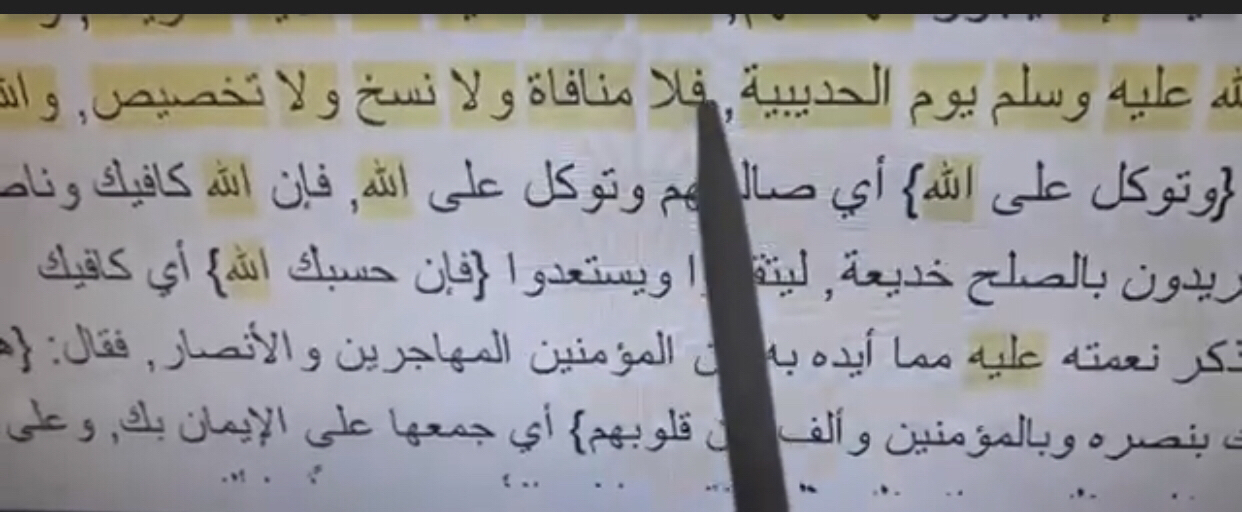 عليه وسلم يوم الحديبية, فلا منافاة ولا نسخ ولا تخصيص,
{وتوكل على الله} أي وتوكل على الله, فإن الله كافيك
بالصلح خديعة, ويستعدوا {فإن حسبك الله} أي كافيك
نعمته عليه مما أيده به المؤمنين المهاجرين والأنصار, فقال:
بنصره وبالمؤمنين وألف قلوبهم} أي جمعها على الإيمان بك, وعلى